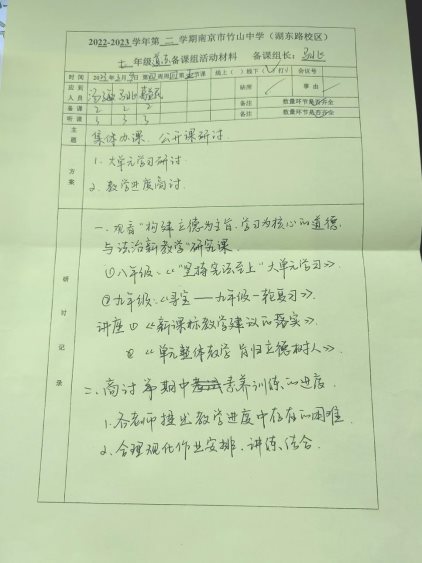 2022-2023学年第 二 学期南京市竹山中学（湖东路校区）
七 年级 道法 备课组活动材料 备课组长：
时间 2023年3月 日 第 周周 第 节课 线上（ ）线下（√打） 会议号
应到人员 缺席 事由
备课 2 2 2 备注 数量环节是否齐全
听课 3 3 3 备注 数量环节是否齐全
主题 集体办课、公开课研讨.
方案 1. 大单元学习研讨
2. 教学进度商讨.
研讨记录
一. 观音"构建立德为主旨、学习为核心的道德
与法治新教学"研究课.
①八年级、《"坚持宪法至上"大单元学习》.
②九年级、《寻宝——九年级一轮复习》.
讲座 ① 《新课标教学建议的落实》.
② 《单元整体教学 旨归立德树人》.
二. 商讨 期中 素养训练的进度.
1. 各老师提出教学进度中存在的困难.
2. 合理规化作业安排、讲练结合.